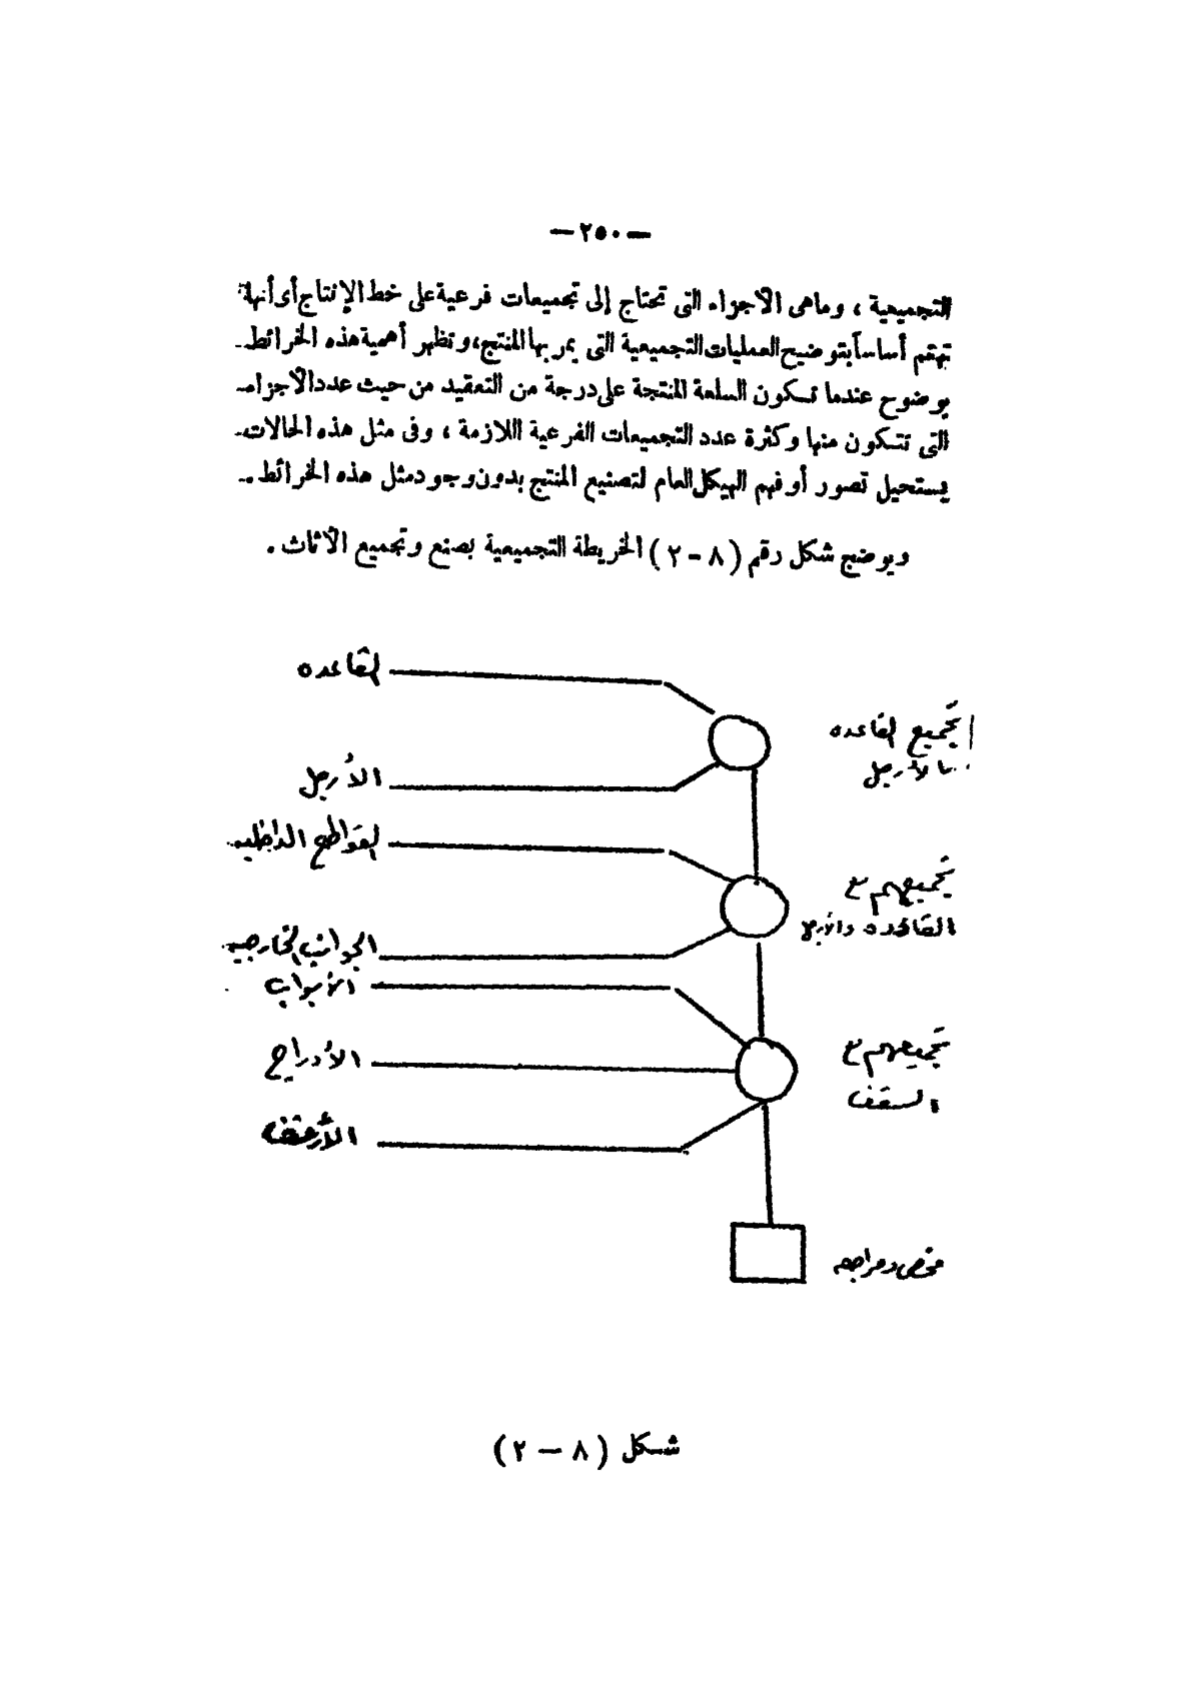 — ٢٥٠ —
التجميعية ، وماهى الأجزاء التى تحتاج إلى تجميعات فرعية على خط الإنتاج أى أنها
تهتم أساساً بتوضيح العمليات التجميعية التى يمر بها المنتج، وتظهر أهمية هذه الخرائط
بوضوح عندما تكون السلعة المنتجة على درجة من التعقيد من حيث عدد الأجزاء
التى تتكون منها وكثرة عدد التجميعات الفرعية اللازمة ، وفى مثل هذه الحالات
يستحيل تصور أو فهم الهيكل العام لتصنيع المنتج بدون وجود مثل هذه الخرائط .
ويوضح شكل رقم ( ٨ - ٢ ) الخريطة التجميعية بصنع وتجميع الأثاث .
القاعده
تجميع القاعده
بالأرجل
الأرجل
القواطع الداخليه
تجميعهم مع
القاعده والأرجل
الجوانب الخارجيه
الأبواب
تجميعهم مع
السقف
الأدراج
فحص ومراجعه
شكل ( ٨ — ٢ )